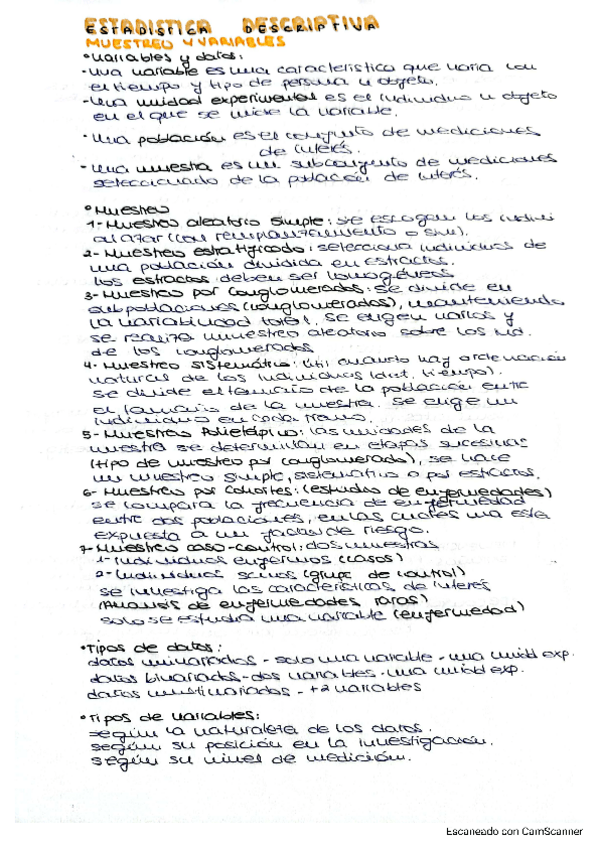 ESTADISTICA DESCRIPTIVA
MUESTREO Y VARIABLES
•Variables y datos:
-Una variable es una caracteristica que varia con
el tiempo y tipo de persona u objeto.
-Una unidad experimental es el individuo u objeto
en el que se mide la variable.
-Una población es el conjunto de mediciones
de interés.
-Una muestra es un subconjunto de mediciones
seleccionado de la población de interés.
•Muestreo
1-Muestreo aleatorio simple: se escogen los indivi
al azar (con remplanzamiento o sin).
2-Muestreo estratificado: selecciona individuos de
una población dividida en estractos.
los estractos deben ser homogéneos
3-Muestreo por conglomerados: se divide en
subpoblaciones (conglomerados), manteniendo
la variabilidad total. se eligen varios y
se realiza muestreo aleatorio sobre los ind.
de los conglomerados
4-Muestreo Sistemático: Útil cuanto hay ordenación
natural de los individuos (dist, tiempo).
se divide el tamaño de la población entre
el tamaño de la muestra. se elige un
individuo en cada tramo.
5-Muestreo Polietápico: las unidades de la
muestra se determinan en etapas sucesivas
(tipo de muestreo por conglomerado), se hace
un muestreo simple, sistematico o por estractos.
6-Muestreo por cohortes: (estudios de enfermedades)
se compara la frecuencia de enfermedad
entre dos poblaciones, en las cuales una esta
expuesta a un factor de riesgo.
7-Muestreo caso-control: dos muestras
1-Individuos enfermos (casos)
2-Individuos sanos (grupo de control)
se investiga las caracteristicas de interés
(Analisis de enfermedades raras)
solo se estudia una variable (enfermedad)
•Tipos de datos:
datos univariados - solo una variable - una unidd exp.
datos bivariados - dos variables - una unidd exp.
datos multivariados - +2 variables
•Tipos de variables:
según la naturaleza de los datos.
según su posición en la investigación.
según su nivel de medición.
Escaneado con CamScanner